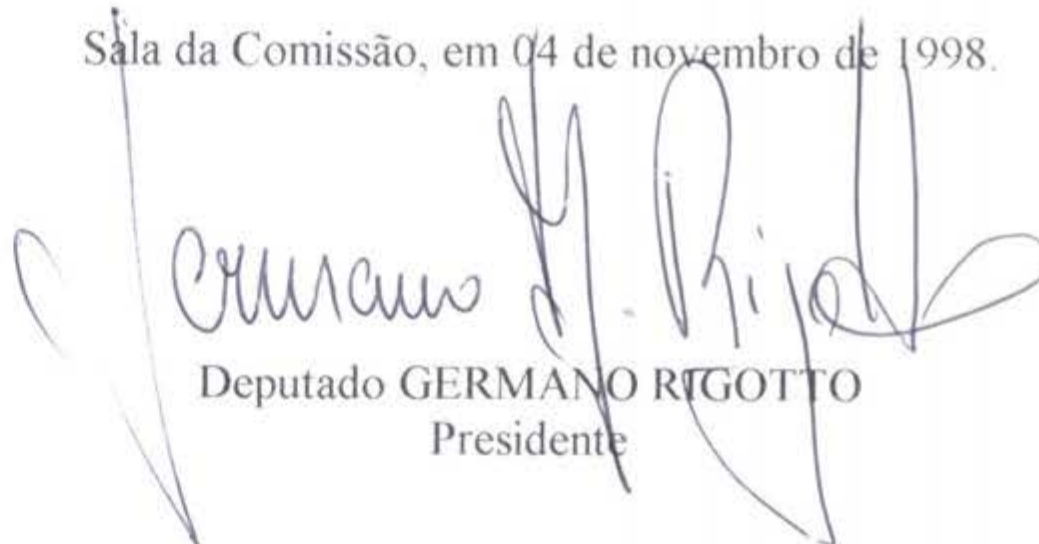 Sala da Comissão, em 04 de novembro de 1998.
Germano Rigotto
Deputado GERMANO RIGOTTO
Presidente